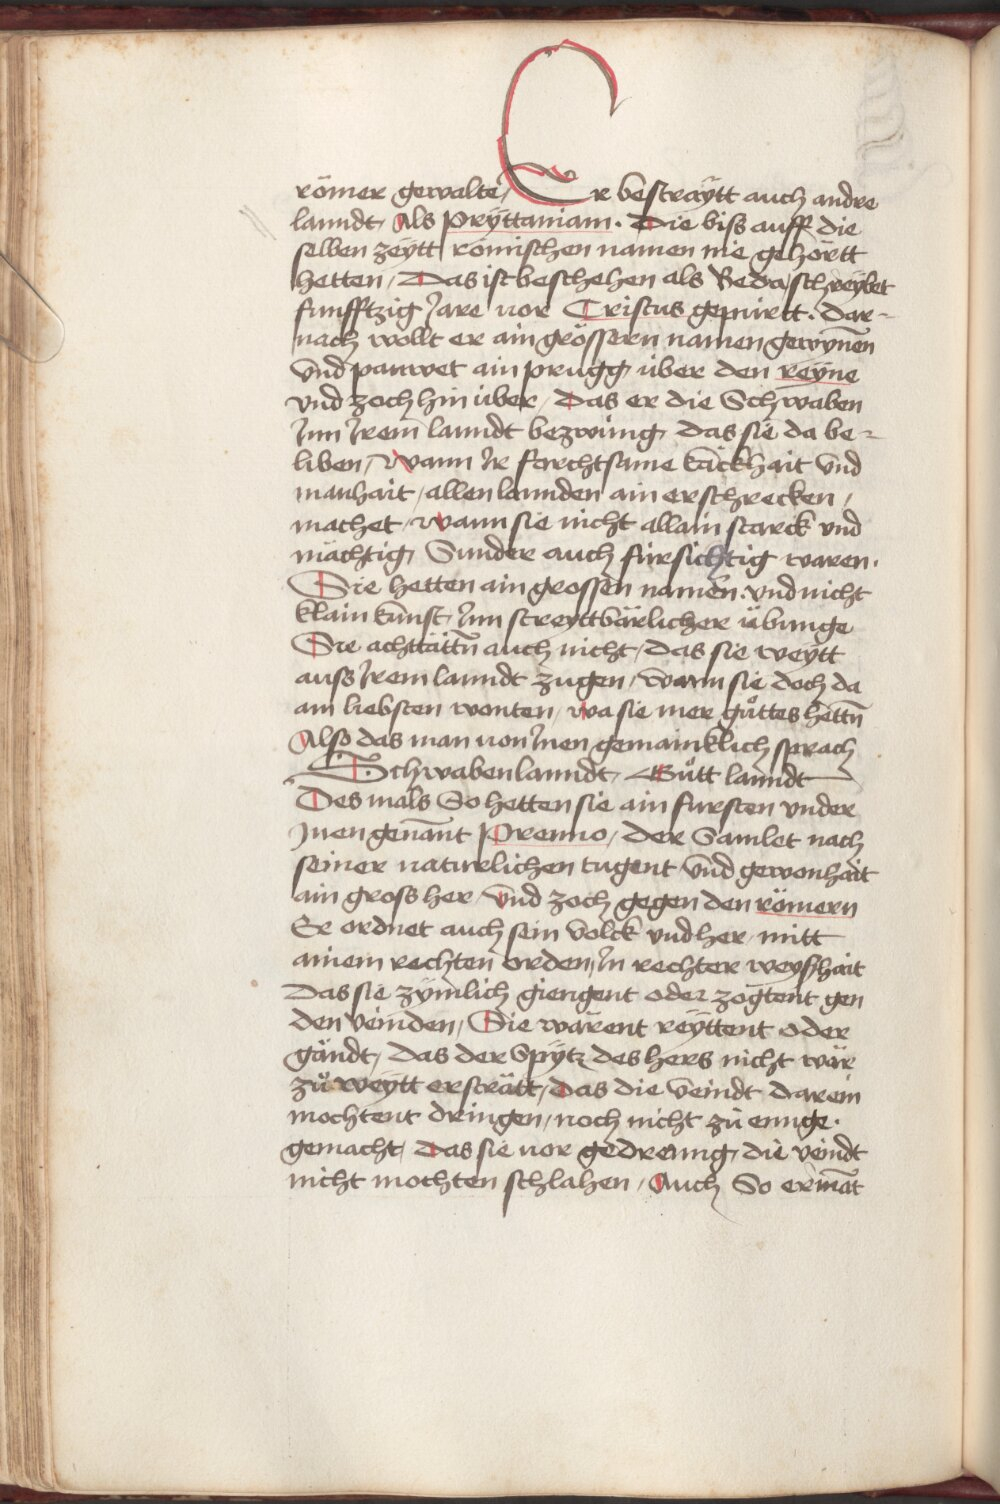 römer gewalte / Er bestraÿtt auch andre
lanndt / Als Prÿttaniam . Die biss auff die
selben zeÿtt römischen namen nie gehörtt
hetten / Das ist beschehen als Beda schreÿbet
funfftzig Jare vor Cristus gepürtt . Dar-
nach wollt er ain grössern namen gewÿnnen
vnd pauwet ain prugg über den reÿne
vnd zoch hin über / Das er die Schwaben
Jnn Jrem lanndt bezwüng / das sie da be-
liben / Wann Jr forchtsame käckhait vnd
manhait / allen lannden ain erschrecken /
machet / Wann sie nicht allain starck vnd
mächtig / Sunder auch fürsichtig waren .
Sie hetten ain grossen namen . vnd nicht
klain kunst / Jnn streÿttbärlicher übunge
Sie achttättn̄ auch nicht / das sie weÿtt
auss Jrem lanndt zugen / Wann sie doch da
am liebsten wonten / wa sie mer gůttes hettn̄
Also das man von Jnen gemainklich sprach
Schwabenlanndt / Gůtt lanndt
Des mals So hetten sie ain fursten vnder
Jnen genānt Prenno / der Samlet nach
seiner naturlichen tugent vnd gewonhait
ain gross her / vnd zoch gegen den römern
Er ordnet auch sein volck vnd her / mitt
ainem rechten orden / Jn rechter weÿsshait
Das sie zÿmlich giengent oder zogtent gen
den veinden / Sie wärent reÿttent oder
gändt / das der Spÿtz des hers nicht wär
zů weÿtt ersträtt / Das die veindt darein
mochtent dringen / noch nicht zů ennge .
gemacht / Das sie vor gedrenng / die veindt
nicht mochten schlahen / Auch So ermāt